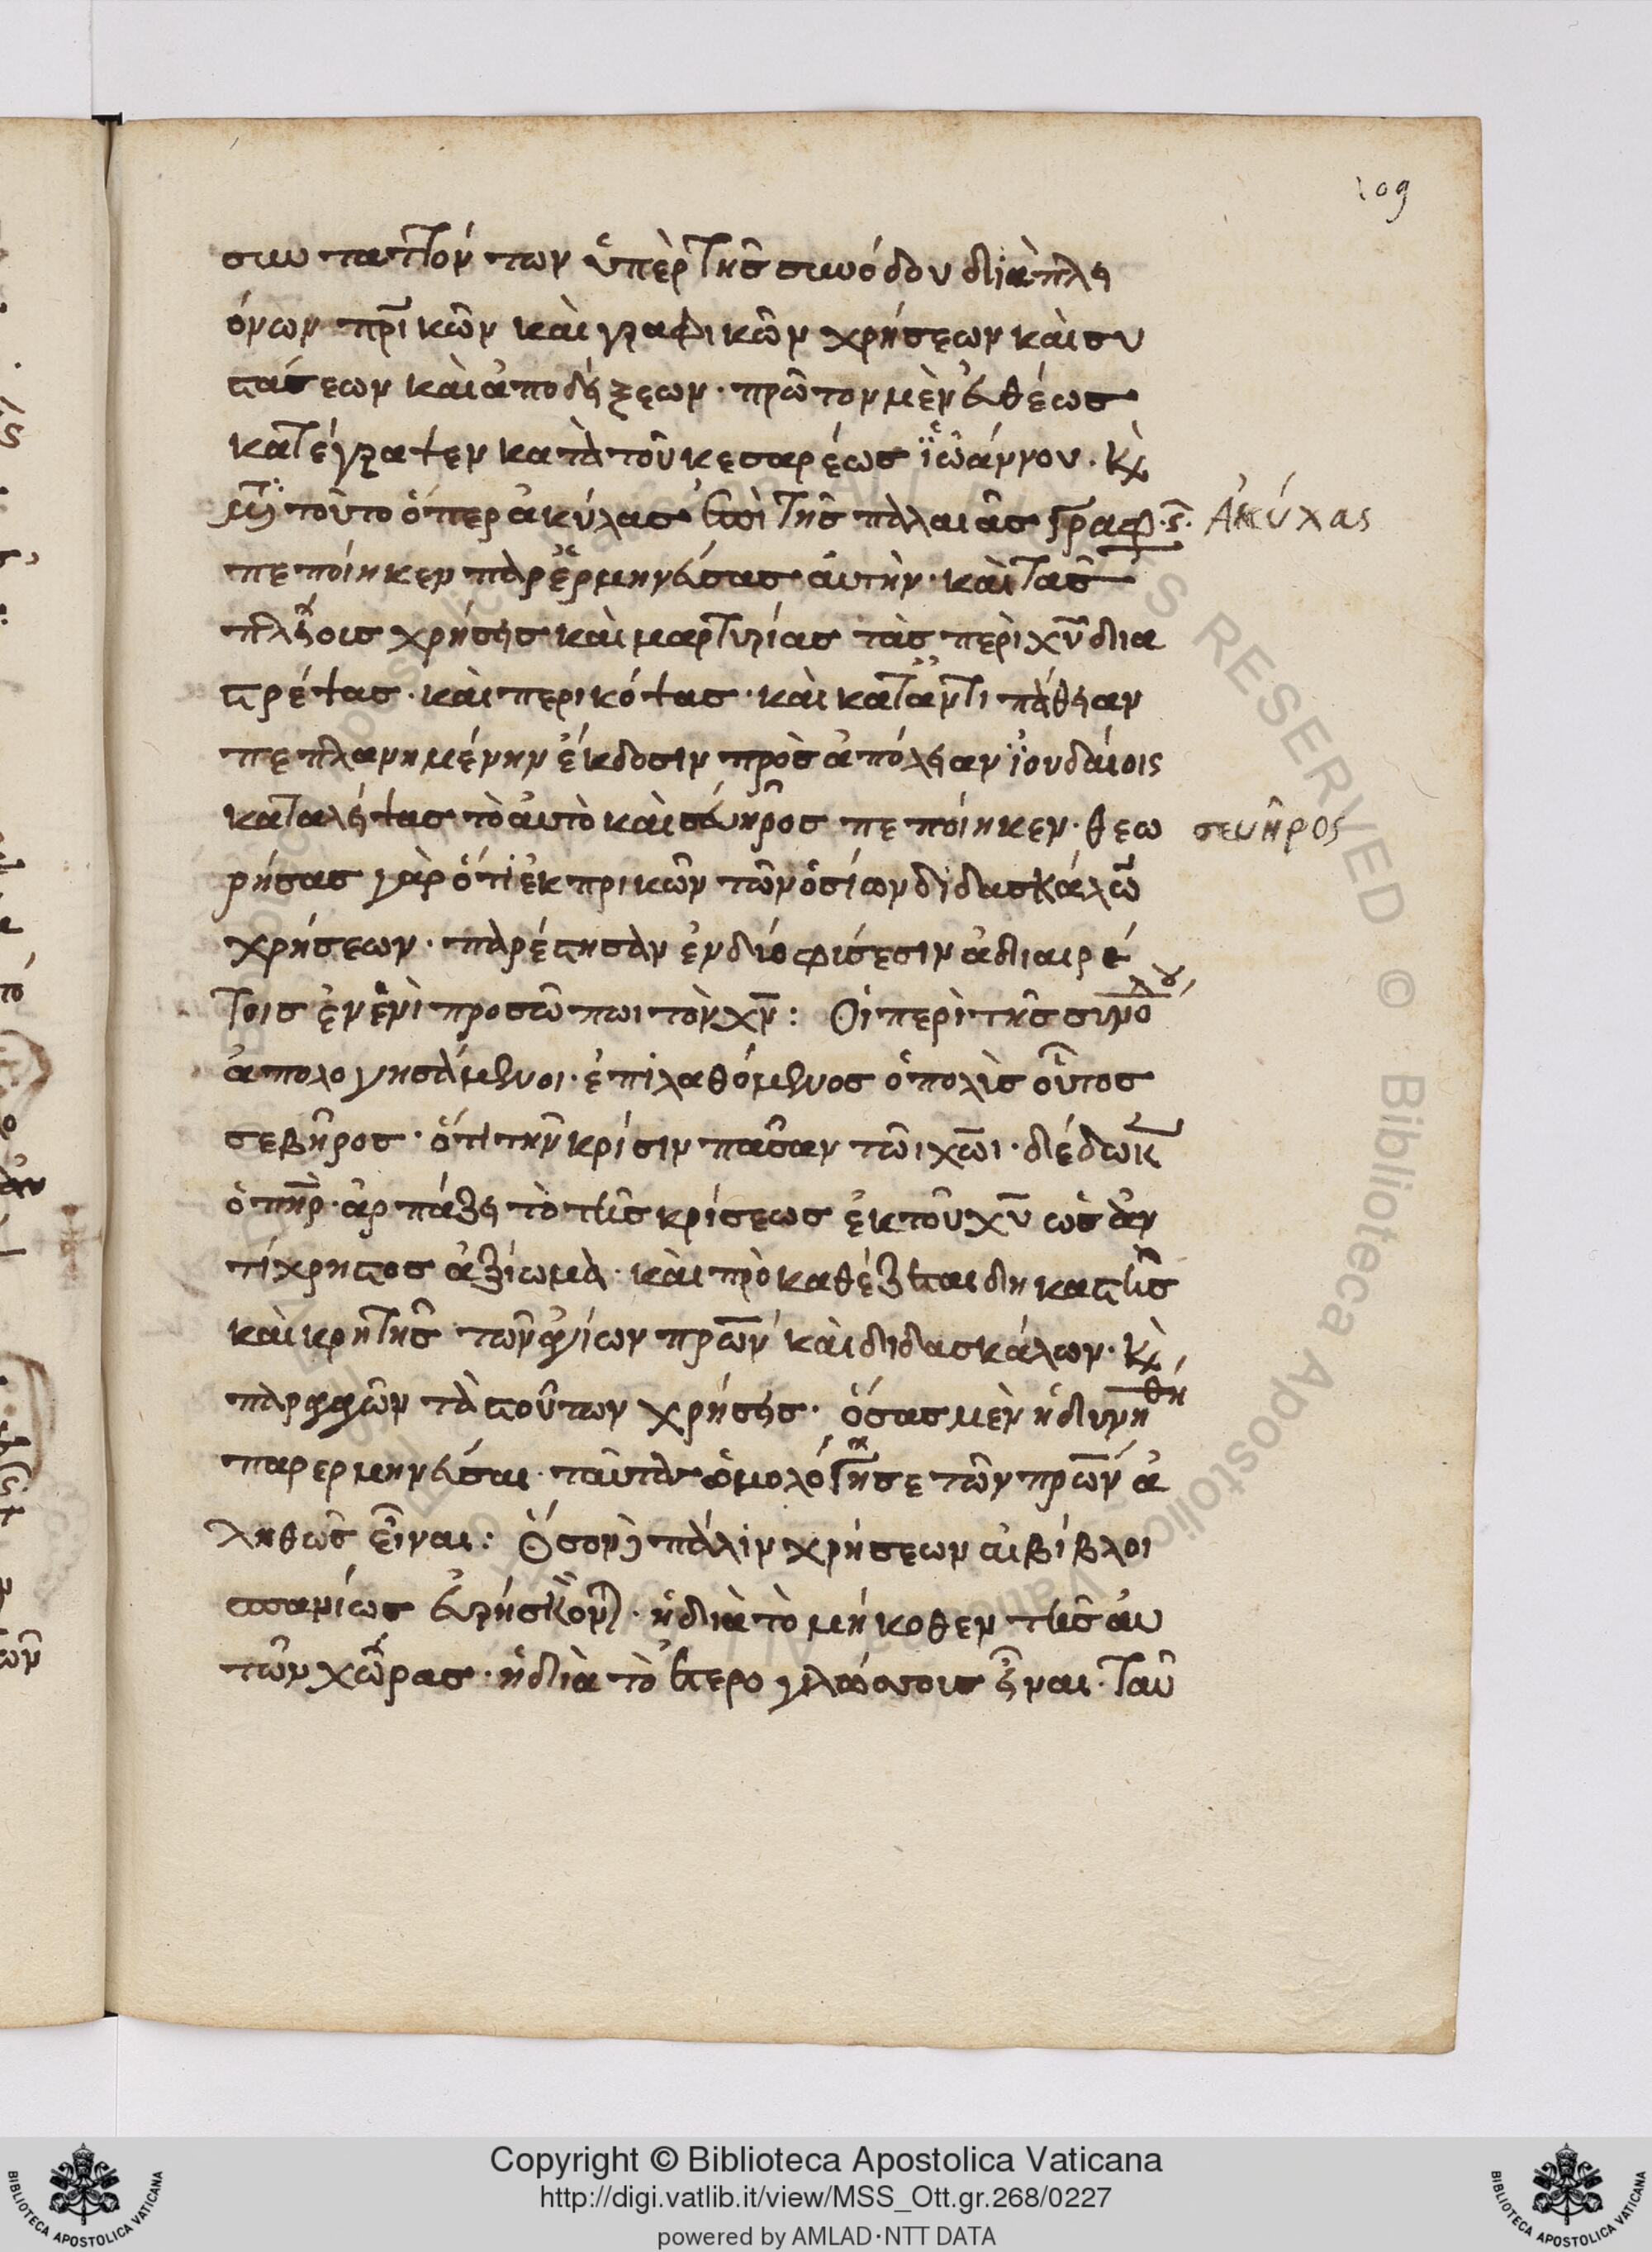 109
συν ταττόντων ὑπὲρ τῆς συνόδου διὰ πλει
όνων πρικῶν καὶ γραφικῶν χρήσεων καὶ συ
στάσεων καὶ ἀποδείξεων· πρῶτον μὲν εὐθέως
κατέγραψεν κατὰ τοῦ κεσαρέως ἰωάννου. κὶ
τοῦτο ὅπερ ἀκύλας ἐπὶ τῆς παλαιᾶς γραφ·ς·
Ἀκύλας
πεποίηκεν παρερμηνεύσας αὐτὴν· καὶ τὰς
πλείοις χρήσεις καὶ μαρτυρίας τὰς περὶ χυ δια
στρέψας· καὶ περικόψας· καὶ κατ' ἀντιπάθειαν
πεπλανημένην ἔκδοσιν πρὸς ἀπόλειαν ἰουδαίοις
καταλείψας τὸ αὐτὸ καὶ σευῆρος πεποίηκεν· θεω
σευῆρος
ρήσας γὰρ ὅτι ἐκ πρικῶν τῶν ὁσίων διδασκάλω
χρήσεων· παρέστησαν ἐν δύο φύσεσιν ἀδιαιρέ
τοις ἐν ἑνὶ προσώπωι τὸν χν: Οἱ περὶ τῆς συνό
δου
ἀπολογησάμενοι· ἐπιλαθόμενος ὁ πολὺς οὗτος
σεβῆρος· ὅτι τὴν κρίσιν πᾶσαν τῶι χωι· δέδωκ
ὁ πηρ· ἁρπάζει τὸ τῆς κρίσεως ἐκ τοῦ χυ ὡς ἀν
τίχρηστος ἀξίωμα· καὶ προκαθέζεται δηκαστὴς
καὶ κρητὴς τῶν ἁγίων πρων καὶ διδασκάλων· κὶ
τὰς τούτων χρήσεις· ὅσας μὲν ἠδυνή
θη
παρερμηνεύσαι· ταύτας ὁμολόγησε τῶν πρων ἀ
ληθῶς εἶναι: Ὅσον δὲ πάλιν χρήσεων αἱ βίβλοι
σπανίως εὑρίσκονται· ἢ διὰ τὸ μήκοθεν τῆς αὐ
τῶν χώρας· ἢ διὰ τὸ ἑτερογλώσσους εἶναι· ταύ
Copyright © Biblioteca Apostolica Vaticana
http://digi.vatlib.it/view/MSS_Ott.gr.268/0227
powered by AMLAD·NTT DATA
BIBLIOTECA APOSTOLICA VATICANA
BIBLIOTECA APOSTOLICA VATICANA